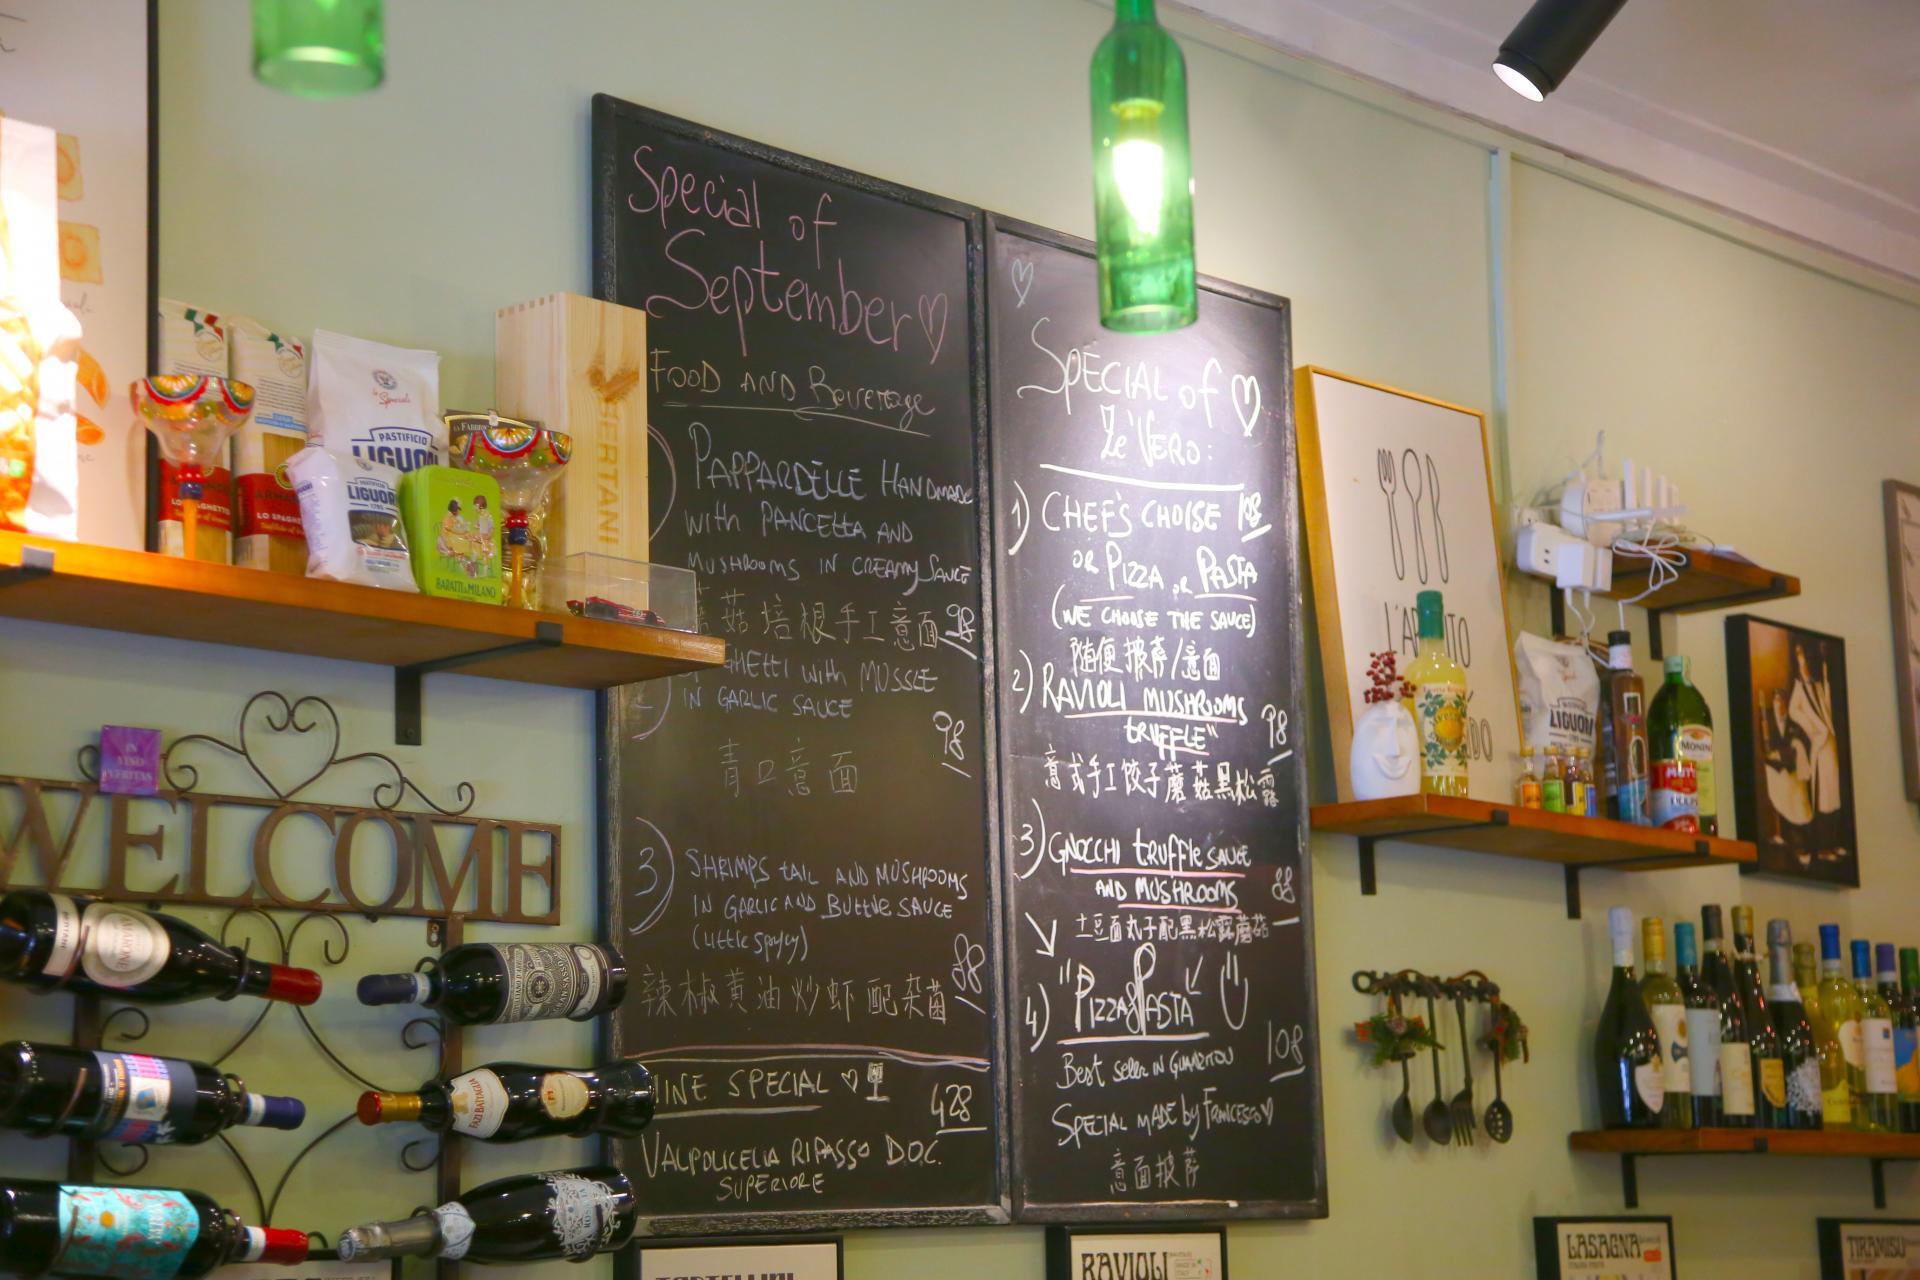 Special of
September
Food and Beverage
PAPPARDELLE HANDMADE
with PANCETTA AND
MUSHROOMS IN CREAMY SAUCE
菇培根手工意面 98
GHETTI with MUSSLE
IN GARLIC SAUCE
98
青口意面
3)
SHRIMPS tAIL AND MUSHROOMS
IN GARLIC AND BUTTER SAUCE
(Little Spycy)
88
辣椒黄油炒虾配杂菌
WINE SPECIAL
428
VALPOLICELLA RIPASSO DOC.
SUPERIORE
SPECIAL of
Ze'VERO:
1) CHEF'S CHOISE 108
OR PIZZA OR PASTA
(WE CHOOSE THE SAUCE)
随便披荐/意面
2) RAVIOLI MUSHROOMS
tRUFFLE" 98
意式手工饺子蘑菇黑松露
3) GNOCCHI tRUFFle SAUCE
AND MUSHROOMS 88
土豆面丸子配黑松露蘑菇
4) "PIZZAPASTA"
108
Best seller IN GUANGZHOU
SPECIAL MADE by FRANCESCO
意面披荐
WELCOME
IN
VINO
VERITAS
PASTIFICIO
LIGUORI
PASTIFICIO
LIGUORI
1795
LO SPAGHETTO
LO SPAGHE
LA FABBRI
BARATTI & MILANO
BERTANI
BERTANI
AMARONE
FAZI BATTAGLIA
L'AP
ITO
DO
LIGUORI
MONINI
MUTTI
TORTELLINI
RAVIOLI
LASAGNA
TIRAMISU